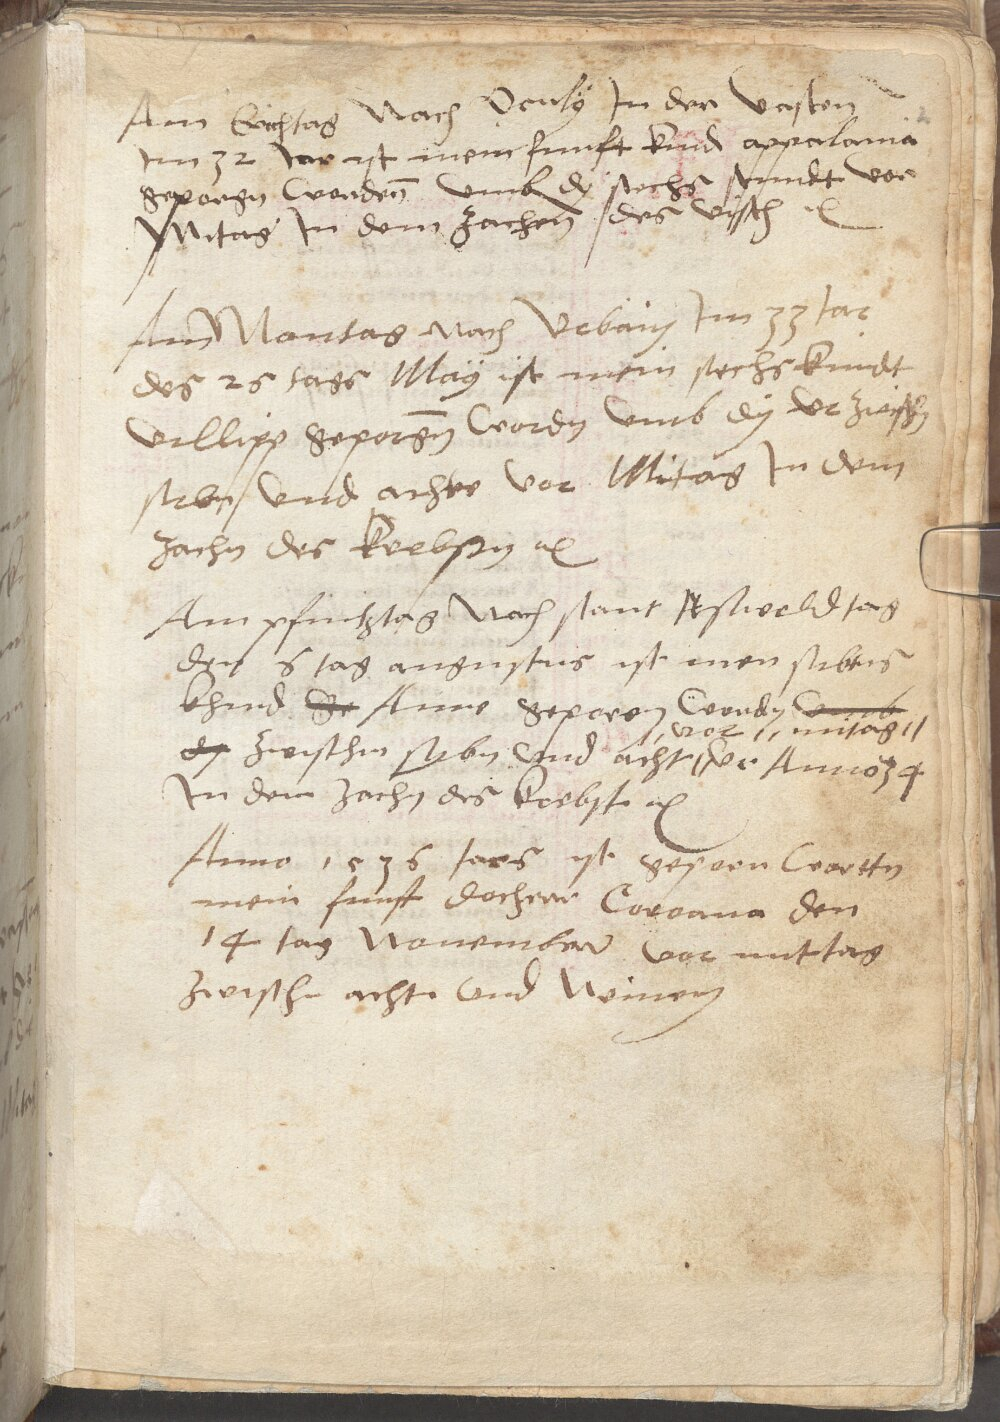 Am Erchtag Nach Oculy In der Vasten
Im 32 Jar ist mein funfft kind appalonia
geporgn worden umb dy sechs stundt vor
Mitag In dem Zachen des visch
Am Montag Nach Urbany Im 33 Jar
des 26 tags May ist mein sechs kindt
Villipp geporgn wordn umb dy ur zwischn
sibn und achte vor Mitag In dem
zachn des krebssn
Am pfintztag Nach sant Asweld tag
den 6 tag augustus ist men sibens
khind Anne geporen wordn umb
dy zwischn sibn und acht ur vor mitag Anno 34
In dem zachn des krebst
Anno 1536 Jars ist geporn wortn
mein funft dochter Corona den
14 tag November vor mittag
zwischn acht und Neinen